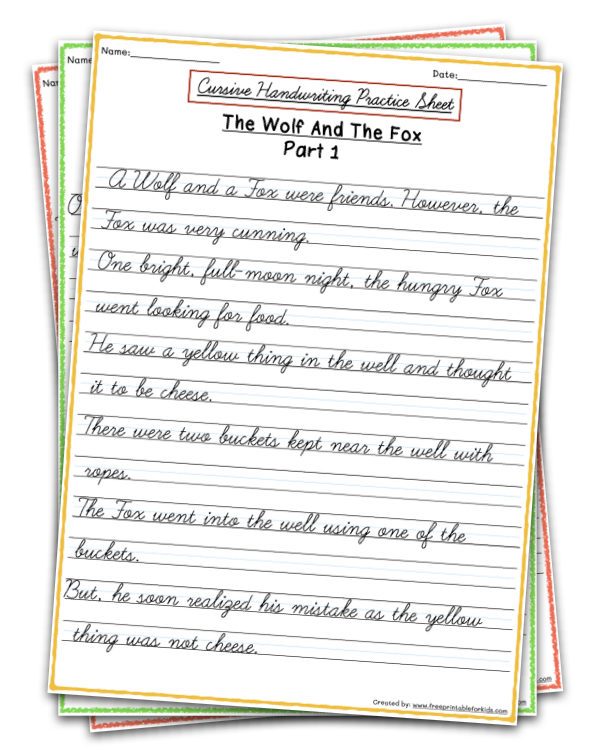 Name: Date:
Cursive Handwriting Practice Sheet
The Wolf And The Fox
Part 1
A Wolf and a Fox were friends. However, the
Fox was very cunning.
One bright, full-moon night, the hungry Fox
went looking for food.
He saw a yellow thing in the well and thought
it to be cheese.
There were two buckets kept near the well with
ropes.
The Fox went into the well using one of the
buckets.
But, he soon realized his mistake as the yellow
thing was not cheese.
Created by: www.freeprintableforkids.com